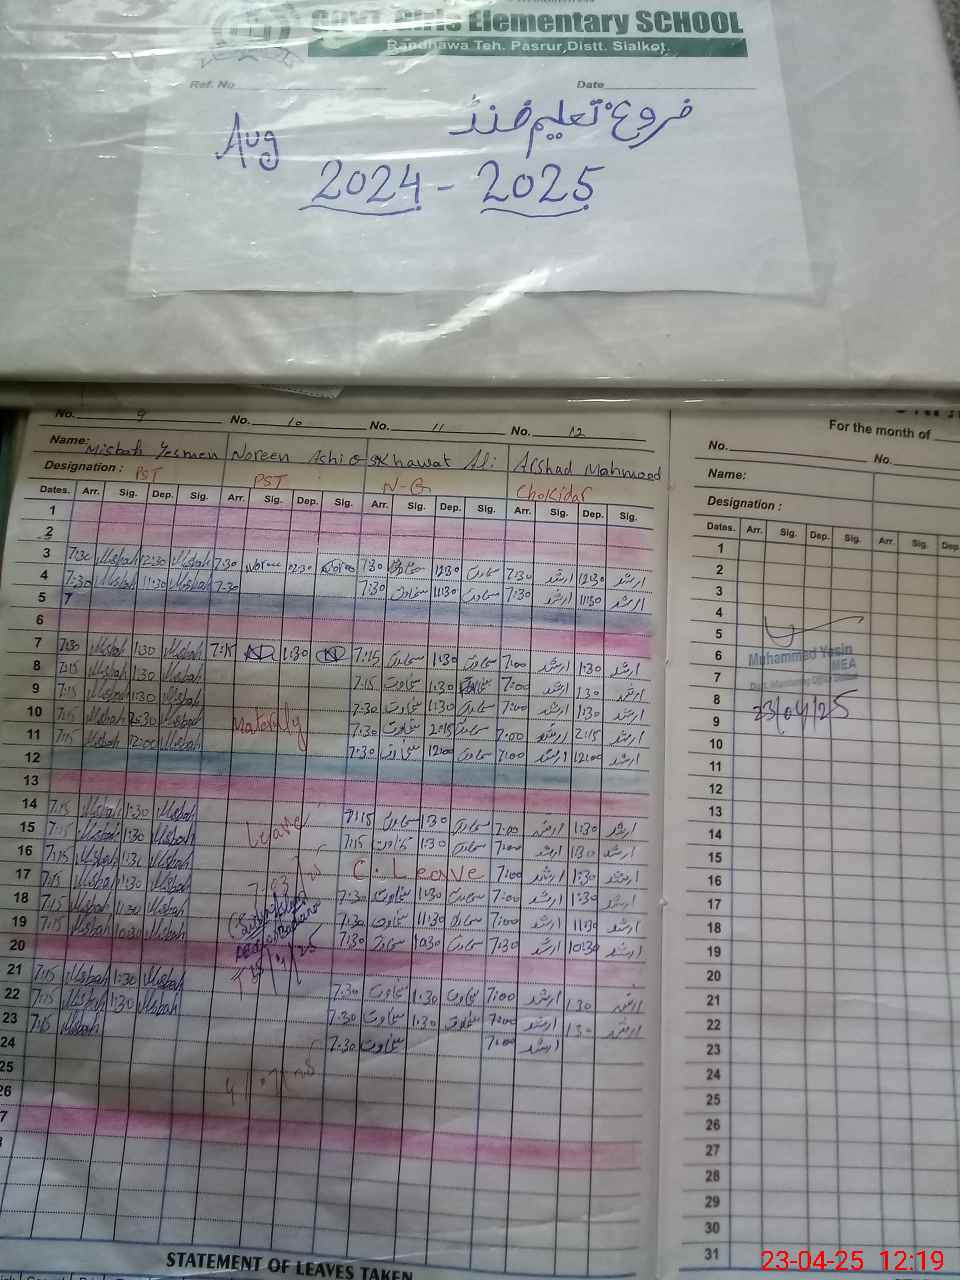 Govt. Girls Elementary SCHOOL
Randhawa Teh. Pasrur, Distt. Sialkot.
Ref. No Date
Aug فروغ تعلیم فنڈ
2024 - 2025
No. 9 No. 10 No. 11 No. 12
Name: Misbah Yesmen Noreen Ashiq Skhawat Ali Arshad Mahmood
Designation : PST PST N-Q Chokidar
Dates. Arr. Sig. Dep. Sig. Arr. Sig. Dep. Sig. Arr. Sig. Dep. Sig. Arr. Sig. Dep. Sig.
1
2
3 7:30 Misbah 12:30 Misbah 7:30 Noreen 12:30 Noreen 7:30 سخاوت 12:30 سخاوت 7:30 ارشد 12:30 ارشد
4 7:30 Misbah 11:30 Misbah 7:30 7:30 سخاوت 11:30 سخاوت 7:30 ارشد 11:30 ارشد
5
6
7 7:30 Misbah 1:30 Misbah 7:15 1:30 7:15 سخاوت 1:30 سخاوت 7:00 ارشد 1:30 ارشد
8 7:15 Misbah 1:30 Misbah 7:15 سخاوت 1:30 سخاوت 7:00 ارشد 1:30 ارشد
9 7:15 Misbah 1:30 Misbah 7:30 سخاوت 1:30 سخاوت 7:00 ارشد 1:30 ارشد
10 7:15 Misbah 2:30 Misbah Maternity 7:30 سخاوت 2:15 سخاوت 7:00 ارشد 2:15 ارشد
11 7:15 Misbah 12:00 Misbah 7:30 سخاوت 12:00 سخاوت 7:00 ارشد 12:00 ارشد
12
13
14 7:15 Misbah 1:30 Misbah Leave 7:15 سخاوت 1:30 سخاوت 7:00 ارشد 1:30 ارشد
15 7:15 Misbah 1:30 Misbah 7:15 سخاوت 1:30 سخاوت 7:00 ارشد 1:30 ارشد
16 7:15 Misbah 1:30 Misbah C. Leave 7:00 ارشد 1:30 ارشد
17 7:15 Misbah 1:30 Misbah 7:30 سخاوت 1:30 سخاوت 7:00 ارشد 1:30 ارشد
18 7:15 Misbah 11:30 Misbah 7:30 سخاوت 11:30 سخاوت 7:00 ارشد 11:30 ارشد
19 7:15 Misbah 10:30 Misbah 7:30 سخاوت 10:30 سخاوت 7:30 ارشد 10:30 ارشد
20
21 7:15 Misbah 1:30 Misbah 7:30 سخاوت 1:30 سخاوت 7:00 ارشد 1:30 ارشد
22 7:15 Misbah 1:30 Misbah 7:30 سخاوت 1:30 سخاوت 7:00 ارشد 1:30 ارشد
23 7:15 Misbah 7:30 سخاوت 7:00 ارشد
24
25
26
7
STATEMENT OF LEAVES TAKEN
For the month of
No. No.
Name:
Designation :
Dates. Arr. Sig. Dep. Sig. Arr. Sig. Dep.
1
2
3
4
5
6 Muhammad Yasin
7 MEA
8 23/04/25
9
10
11
12
13
14
15
16
17
18
19
20
21
22
23
24
25
26
27
28
29
30
31
23-04-25 12:19